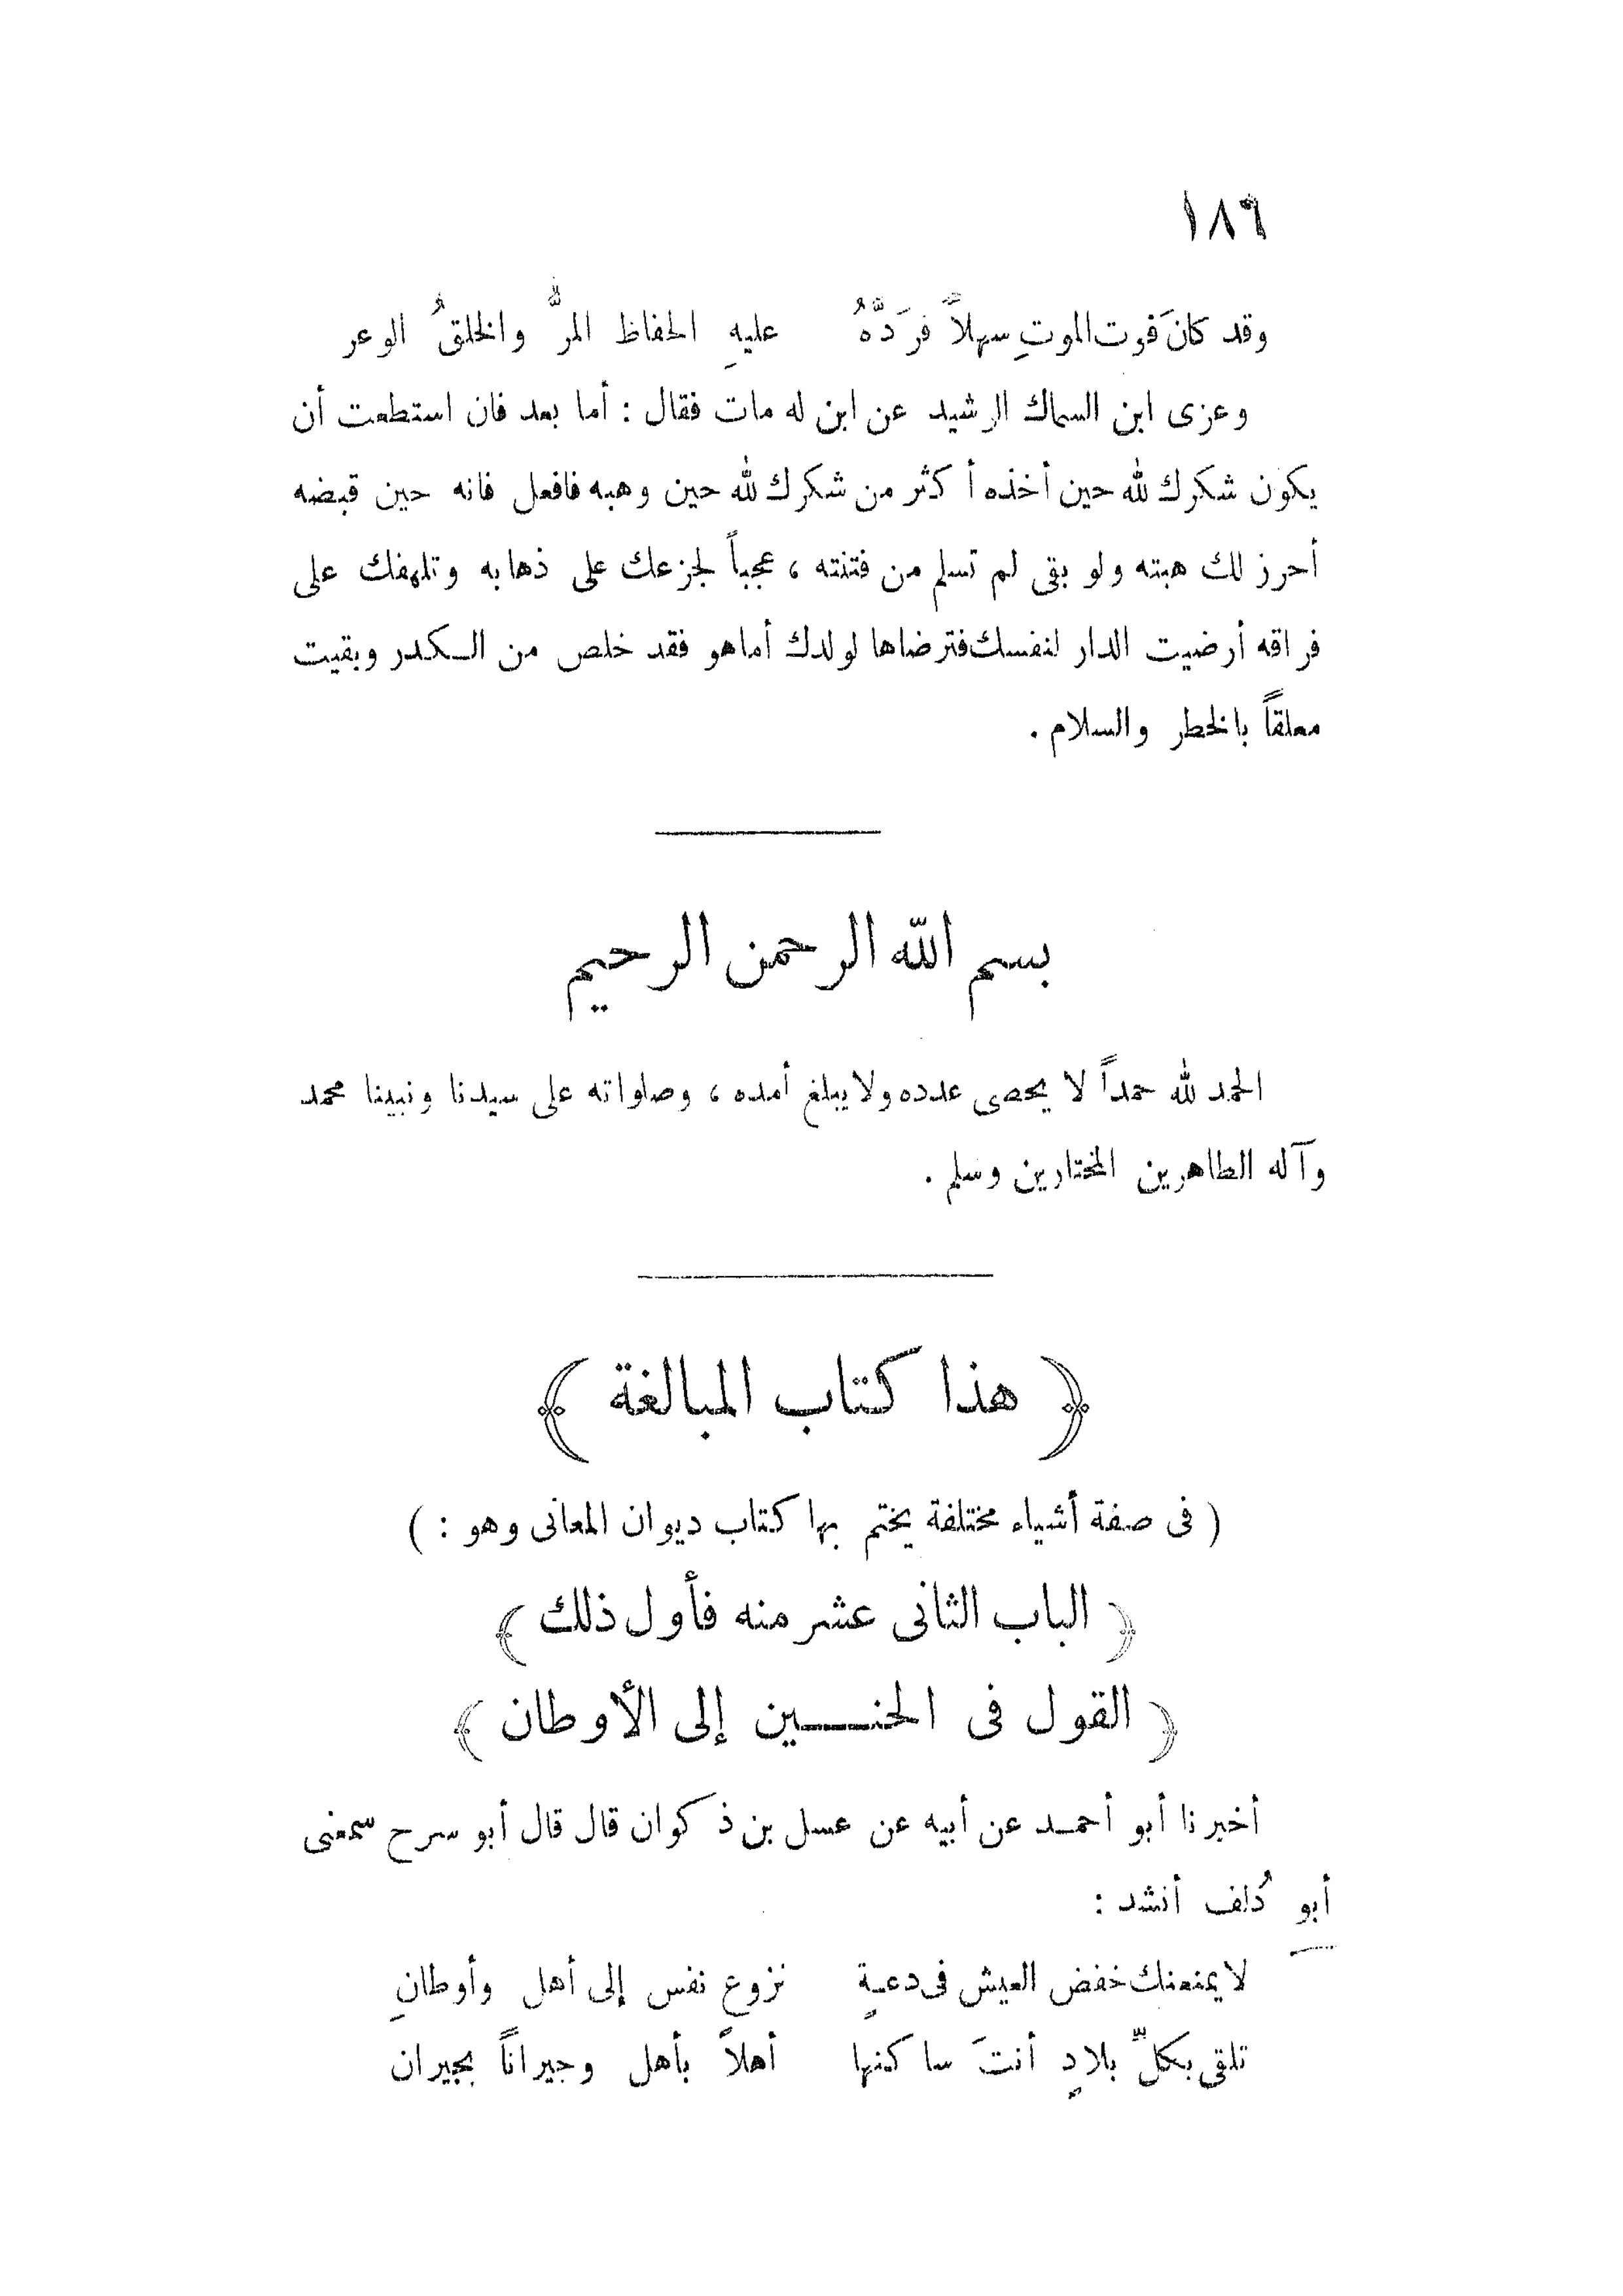 ١٨٦
وقد كانَ فوت الموتِ سهلاً فرَدَّهُ عليهِ الحفاظ المرُّ والخلقُ الوعر
وعزى ابن السماك الرشيد عن ابن له مات فقال : أما بعد فان استطعت أن
يكون شكرك لله حين أخذه أكثر من شكرك لله حين وهبه فافعل فانه حين قبضه
أحرز لك هبته ولو بقى لم تسلم من فتنته ، عجباً لجزعك على ذهابه وتلهفك على
فراقه أرضيت الدار لنفسك فترضاها لولدك أماهو فقد خلص من الكدر وبقيت
معلقاً بالخطر والسلام .
بسم الله الرحمن الرحيم
الحمد لله حمداً لا يحصى عدده ولا يبلغ أمده ، وصلواته على سيدنا ونبينا محمد
وآله الطاهرين المختارين وسلم .
﴿ هذا كتاب المبالغة ﴾
( فى صفة أشياء مختلفة يختم بها كتاب ديوان المعانى وهو : )
﴿ الباب الثانى عشر منه فأول ذلك ﴾
﴿ القول فى الحنـــين إلى الأوطان ﴾
أخبرنا أبو أحمـد عن أبيه عن عسل بن ذكوان قال قال أبو سرح سمعنى
أبو دُلف أنشد :
لا يمنعنك خفض العيش فى دعةٍ نزوع نفس إلى أهل وأوطانِ
تلقى بكلِّ بلادٍ أنتَ ساكنها أهلاً بأهل وجيراناً بجيران